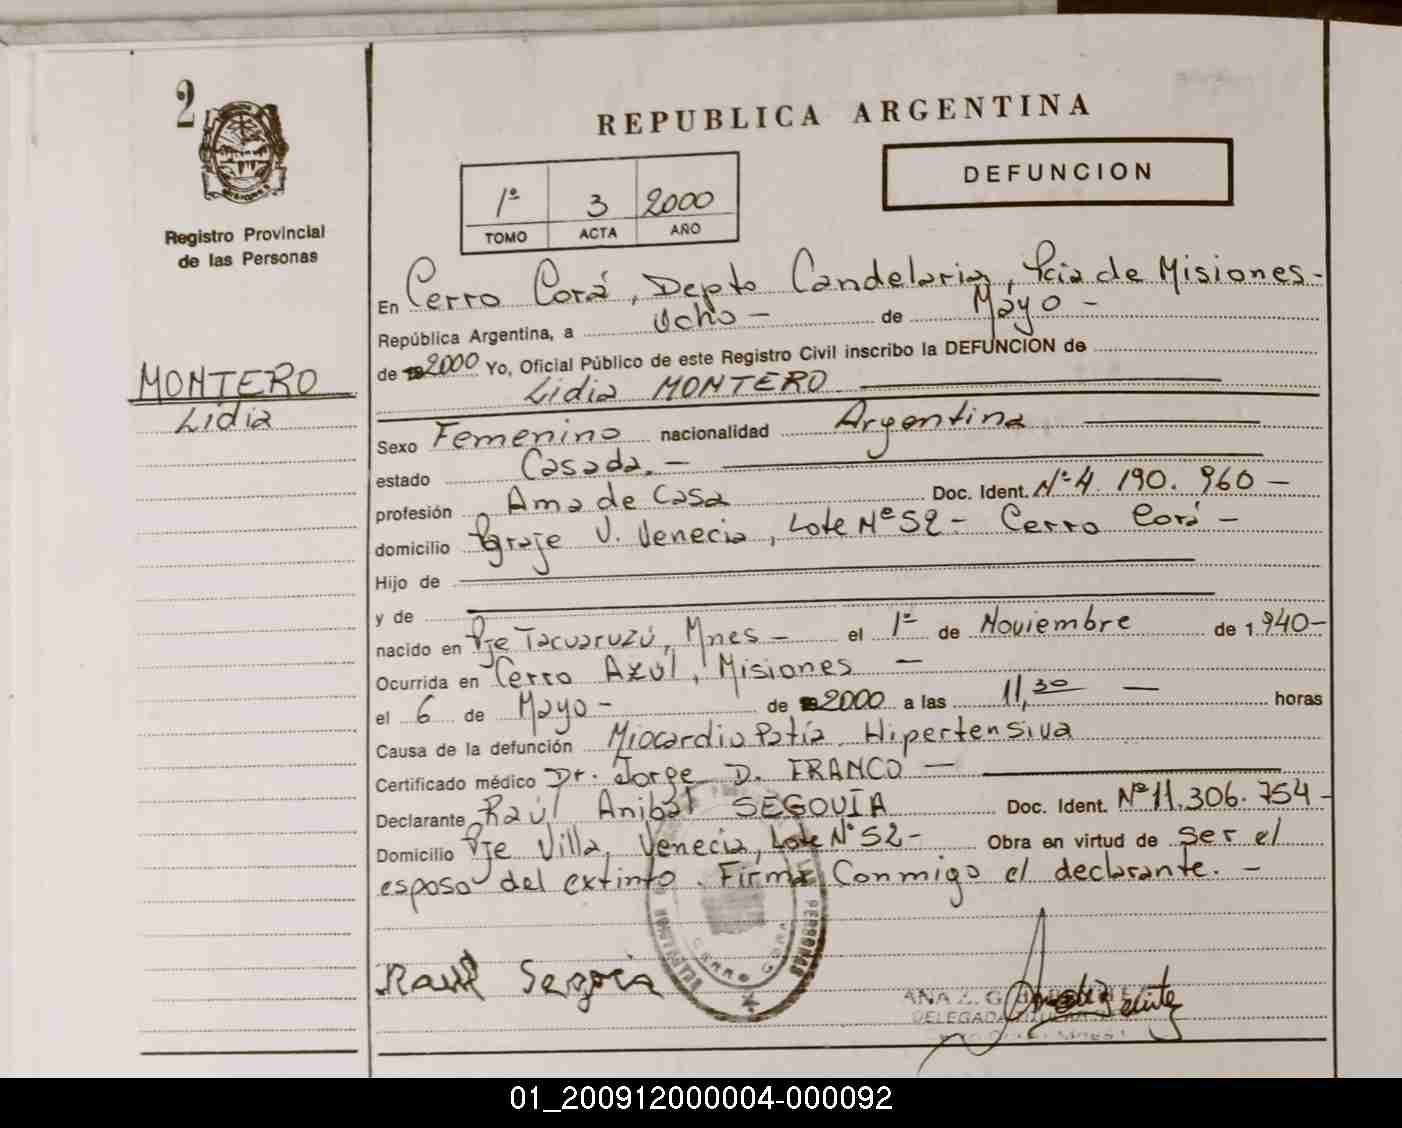 2
REPUBLICA ARGENTINA
DEFUNCION
1º 3 2000
TOMO ACTA AÑO
Registro Provincial
de las Personas
En Cerro Corá, Depto Candelaria, Pcia de Misiones-
República Argentina, a Ocho - de Mayo -
de 2000 Yo, Oficial Público de este Registro Civil inscribo la DEFUNCION de
Lidia MONTERO
MONTERO
Lidia
Sexo Femenino nacionalidad Argentina
estado Casada. -
profesión Ama de Casa Doc. Ident. Nº 4.190.960 -
domicilio Paraje V. Venecia, Lote Nº 52 - Cerro Corá -
Hijo de
y de
nacido en Pje Tacuaruzú, Mnes - el 1º de Noviembre de 1940-
Ocurrida en Cerro Azúl, Misiones -
el 6 de Mayo - de 2000 a las 11,30 - horas
Causa de la defunción MiocardioPatía Hipertensiva
Certificado médico Dr. Jorge D. FRANCO -
Declarante Raúl Anibal SEGOVIA Doc. Ident. Nº 11.306.754-
Domicilio Pje Villa Venecia, Lote Nº 52 - Obra en virtud de ser el
esposo del extinto. Firma Conmigo el declarante. -
Raul Segovia
CERRO CORA
PERSONAS
ANA Z. G
DELEGADA
01_200912000004-000092